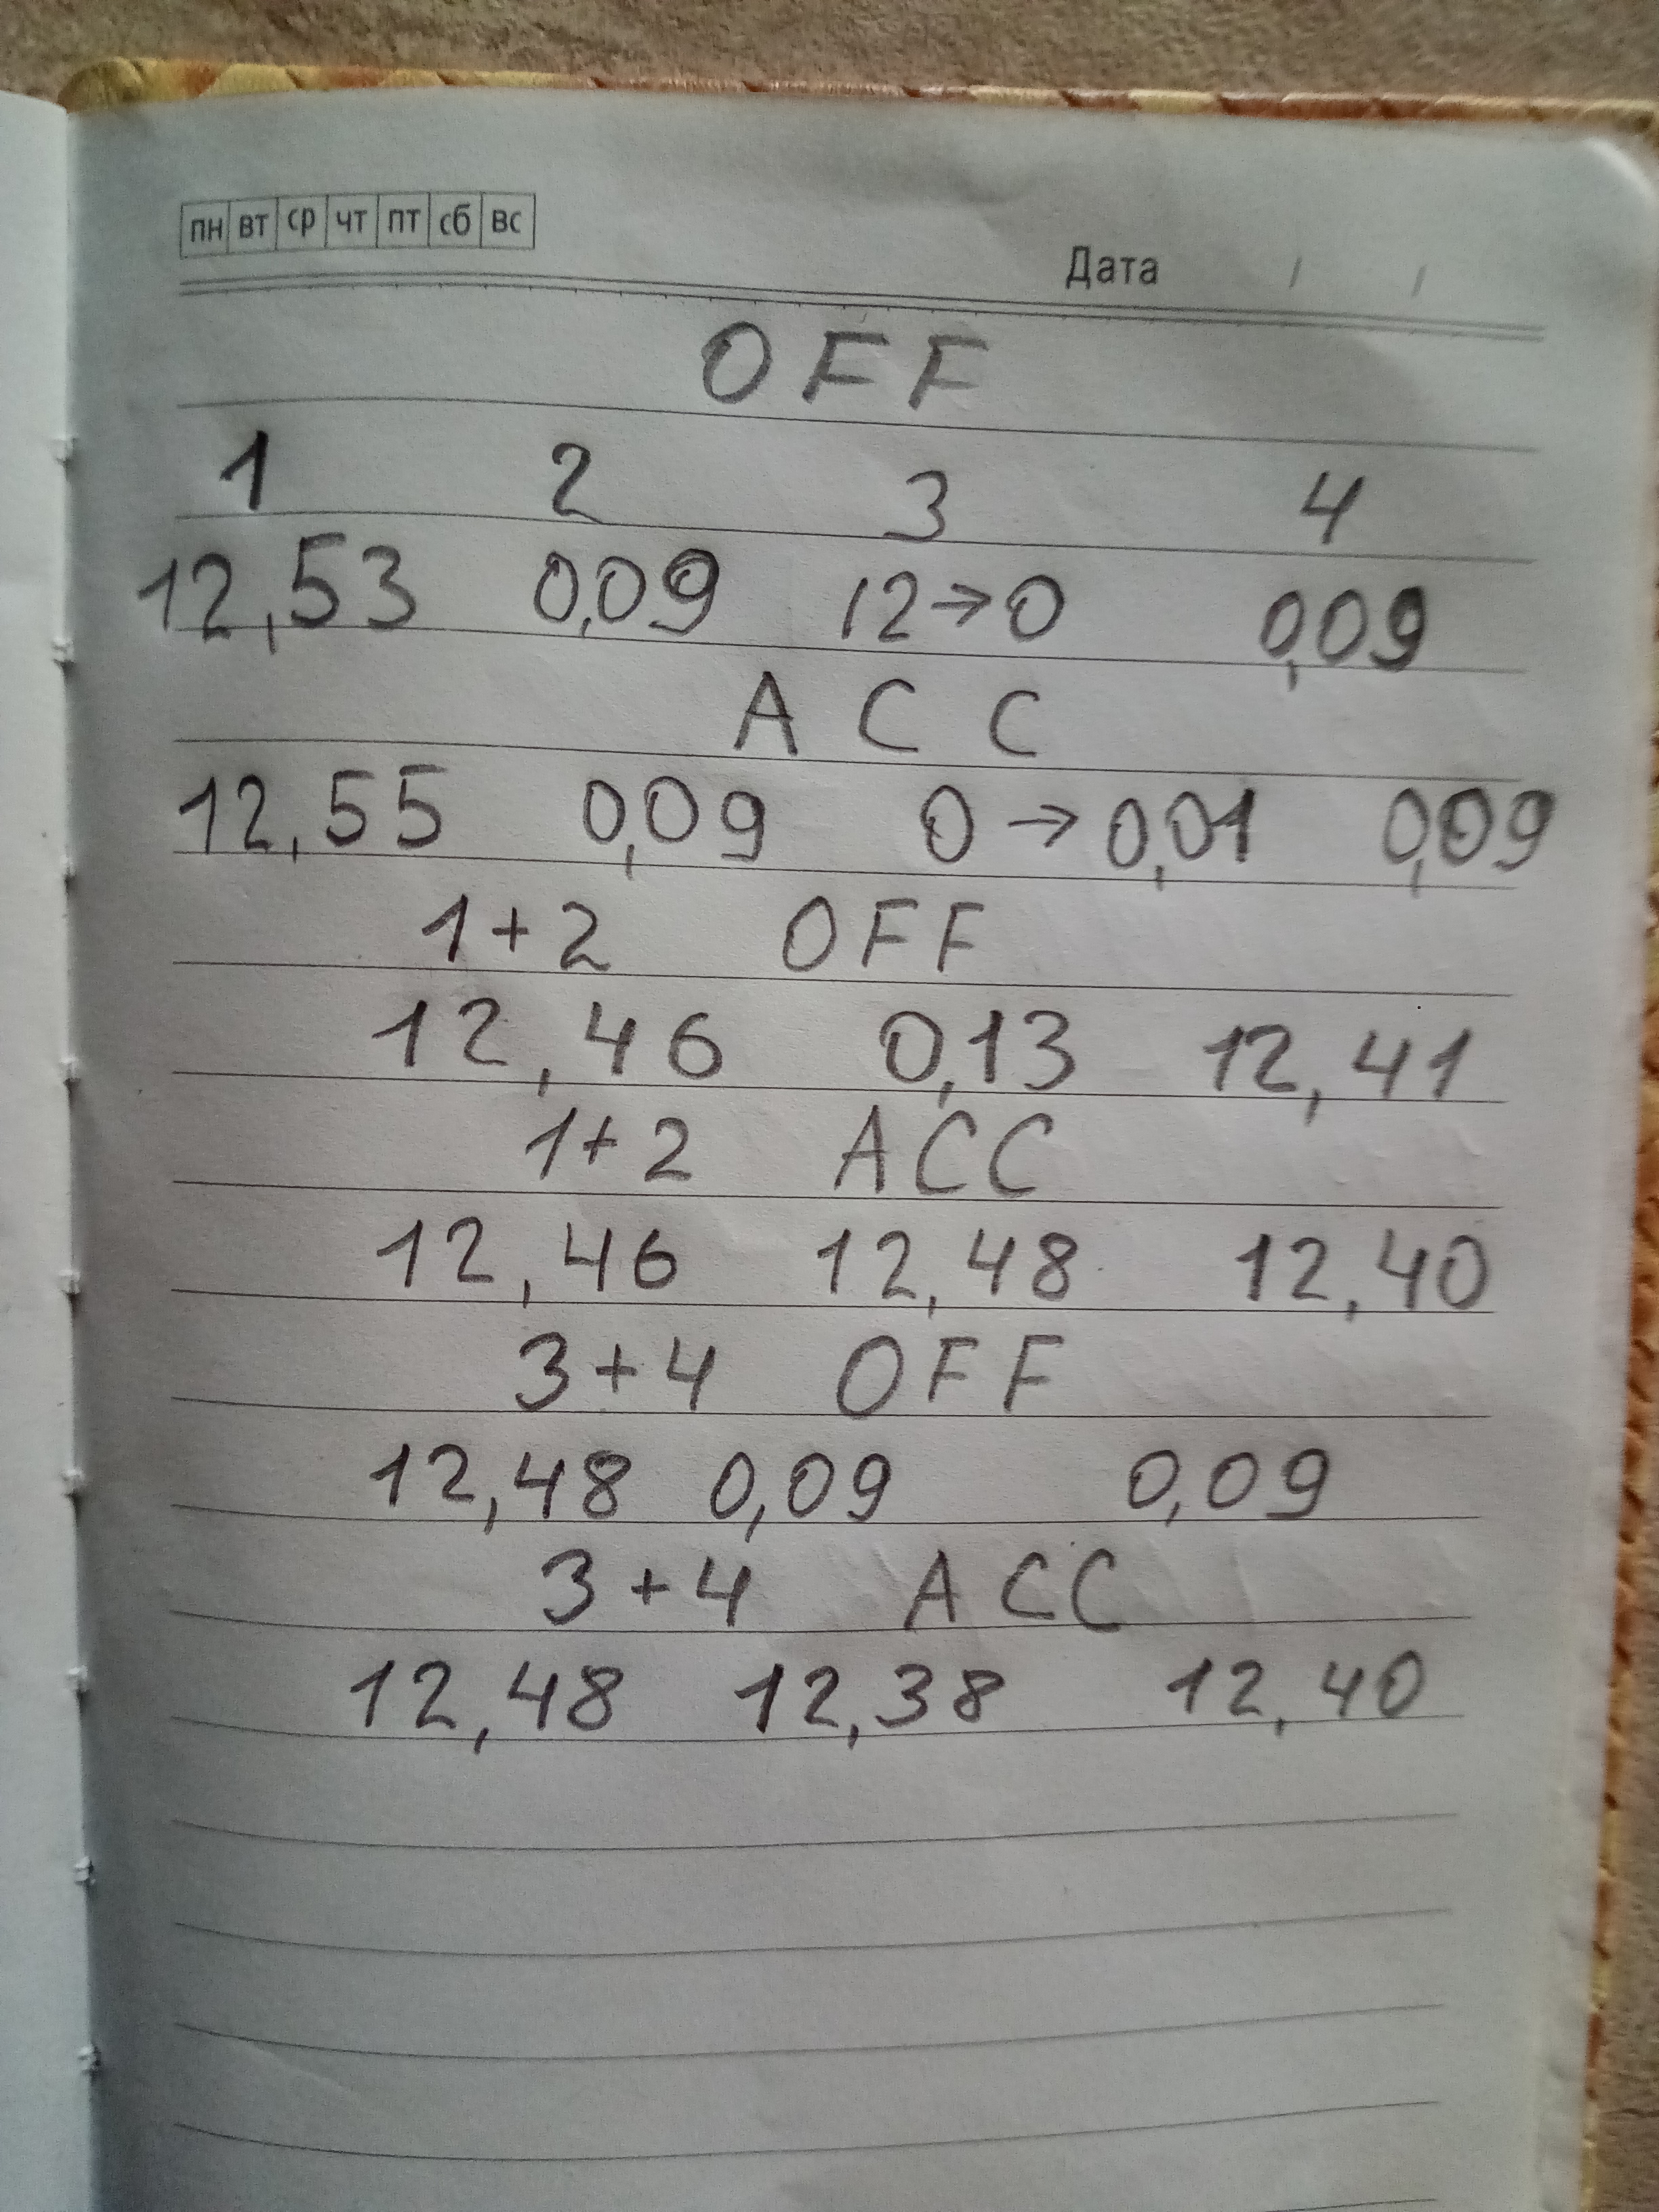 пн вт ср чт пт сб вс
Дата / /
OFF
1 2 3 4
12,53 0,09 12→0 0,09
ACC
12,55 0,09 0→0,01 0,09
1+2 OFF
12,46 0,13 12,41
1+2 ACC
12,46 12,48 12,40
3+4 OFF
12,48 0,09 0,09
3+4 ACC
12,48 12,38 12,40